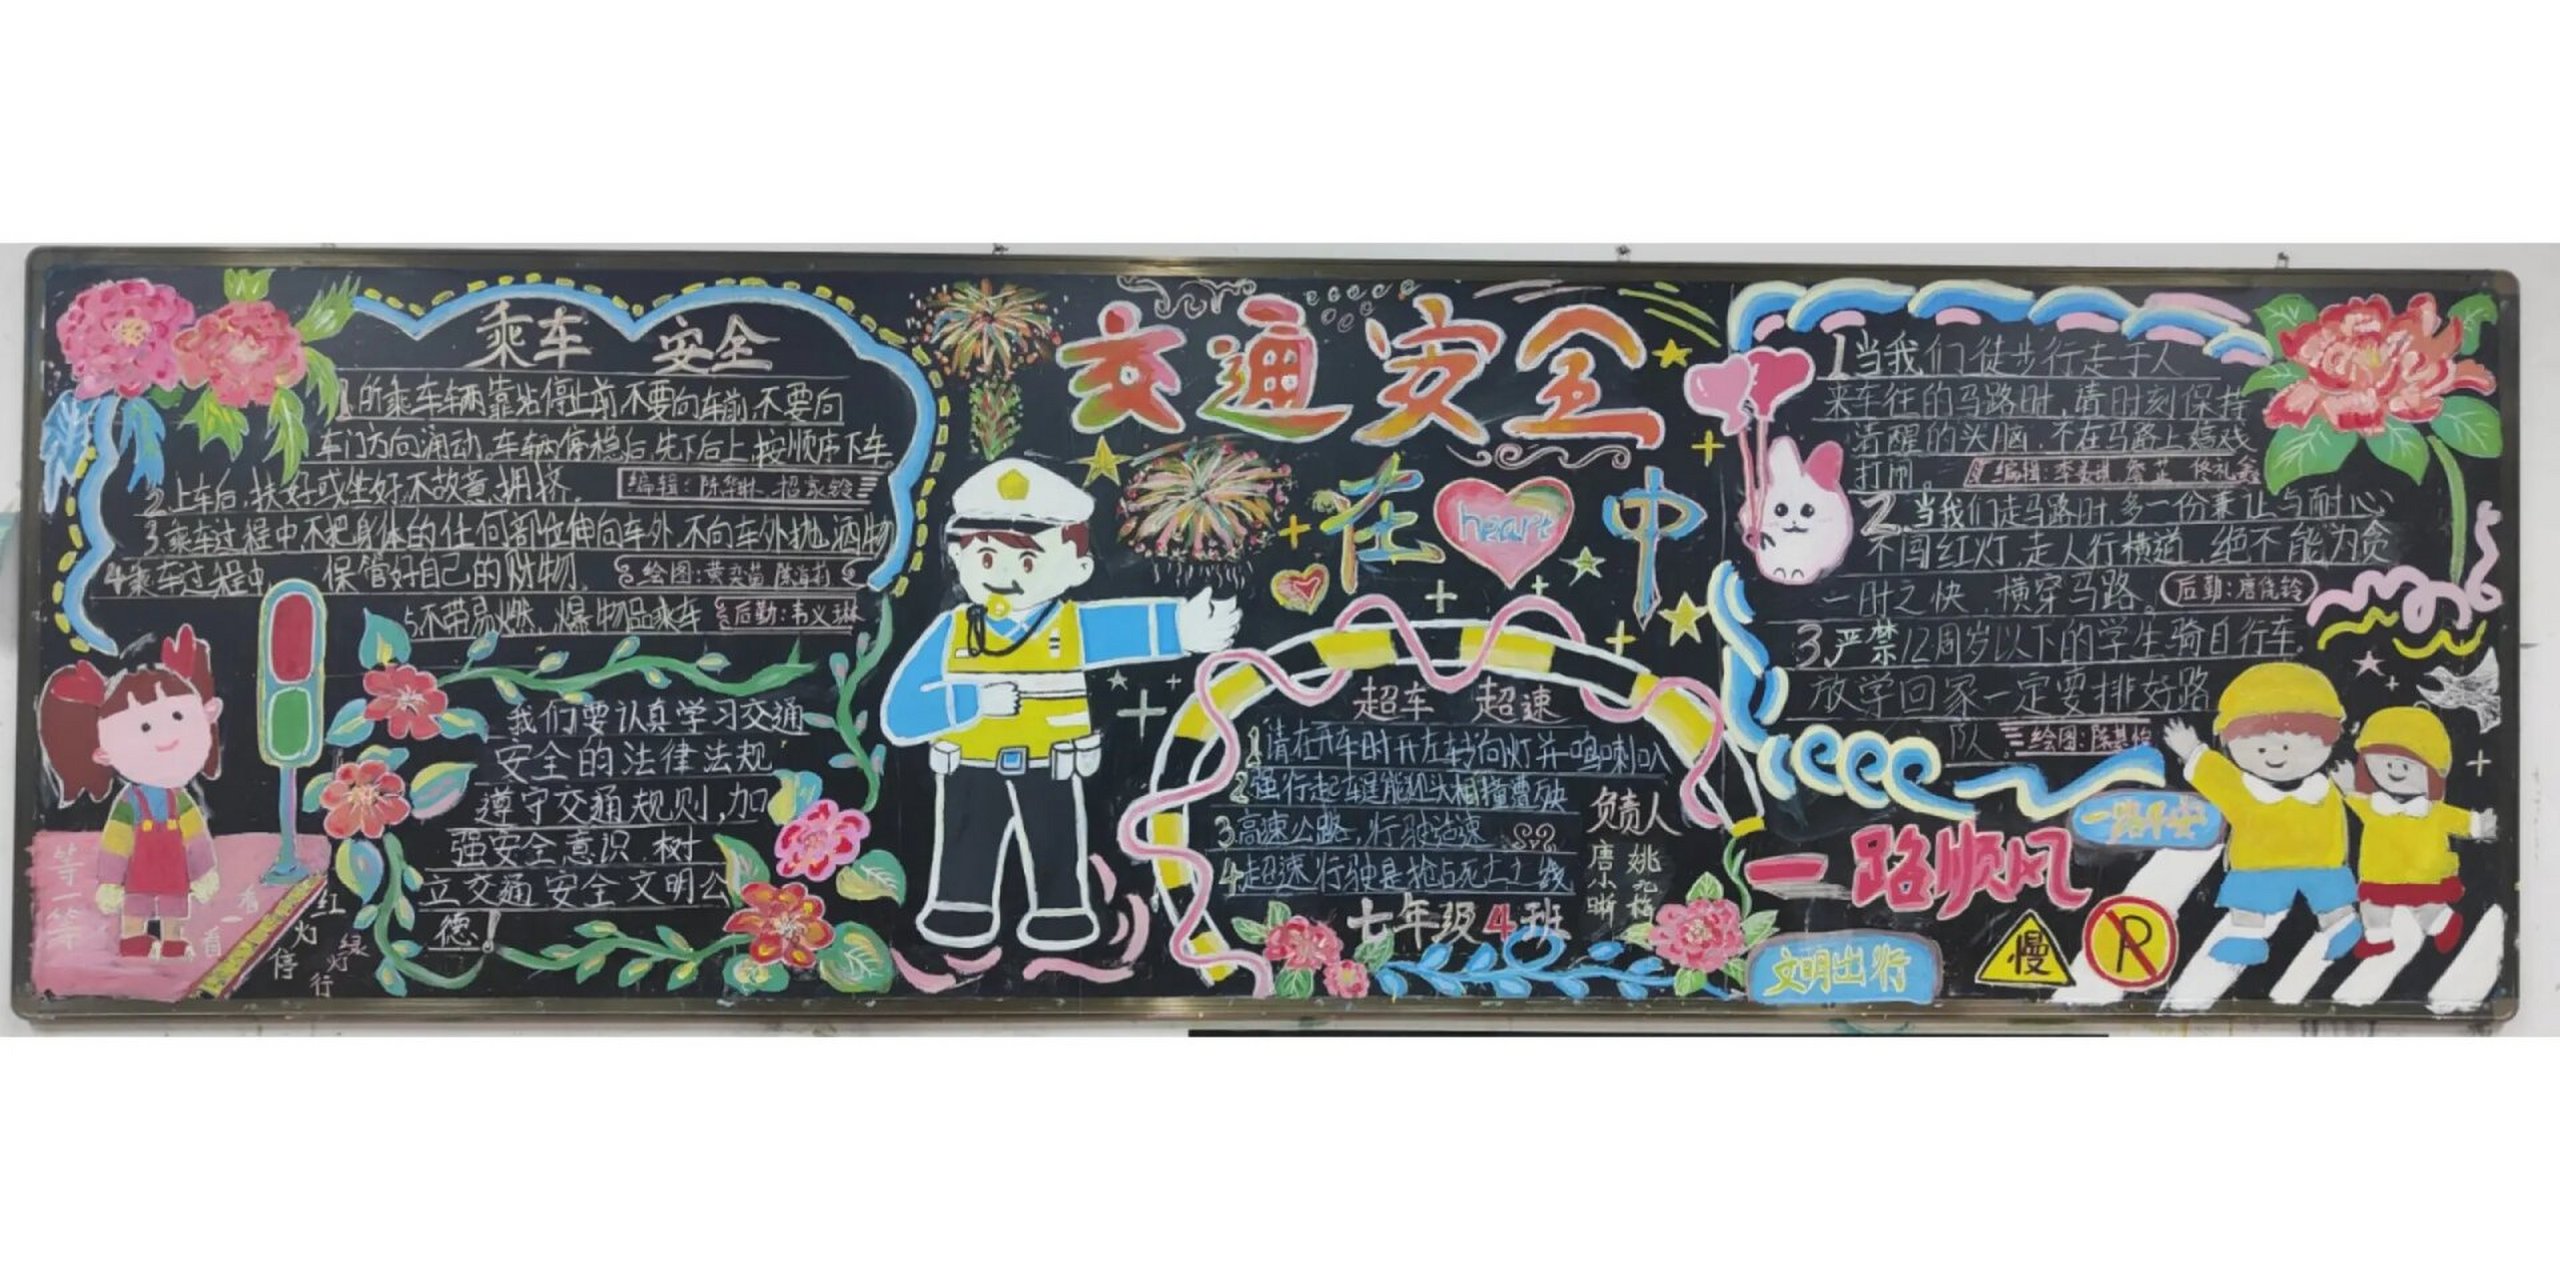 乘车 安全
1.所乘车辆靠站停止前不要向车前,不要向
车门方向涌动,车辆停稳后,先下后上,按顺序下车
2.上车后,扶好或坐好,不故意拥挤。
编辑:陈 招家铃
3.乘车过程中,不把身体的任何部位伸向车外,不向车外抛洒物
4乘车过程中 保管好自己的财物
绘图:黄奕苗 陈海莉
5.不带易燃、爆物品乘车
后勤:韦义琳
我们要认真学习交通
安全的法律法规
遵守交通规则,加
强安全意识 树
立交通安全文明公
德!
等一等
看一看
红灯停
绿灯行
交通安全
在 heart 中
超车 超速
1.请在开车时开左转向灯并鸣喇叭
2强行起车是能迎头相撞遭殃
3.高速公路,行驶 速
4.超速行驶是抢占死亡之线
负责人
唐小晰
姚 梅
七年级4班
1当我们徒步行走于人
来车往的马路时,请时刻保持
清醒的头脑,不在马路上嬉戏
打闹。
编辑:李
2.当我们走马路时,多一份兼让与耐心
不闯红灯,走人行横道,绝不能为贪
一时之快,横穿马路。
后勤:唐 铃
3.严禁12周岁以下的学生骑自行车
放学回家一定要排好路
队
绘图:陈
一路平安
一路顺风
文明出行
慢
P